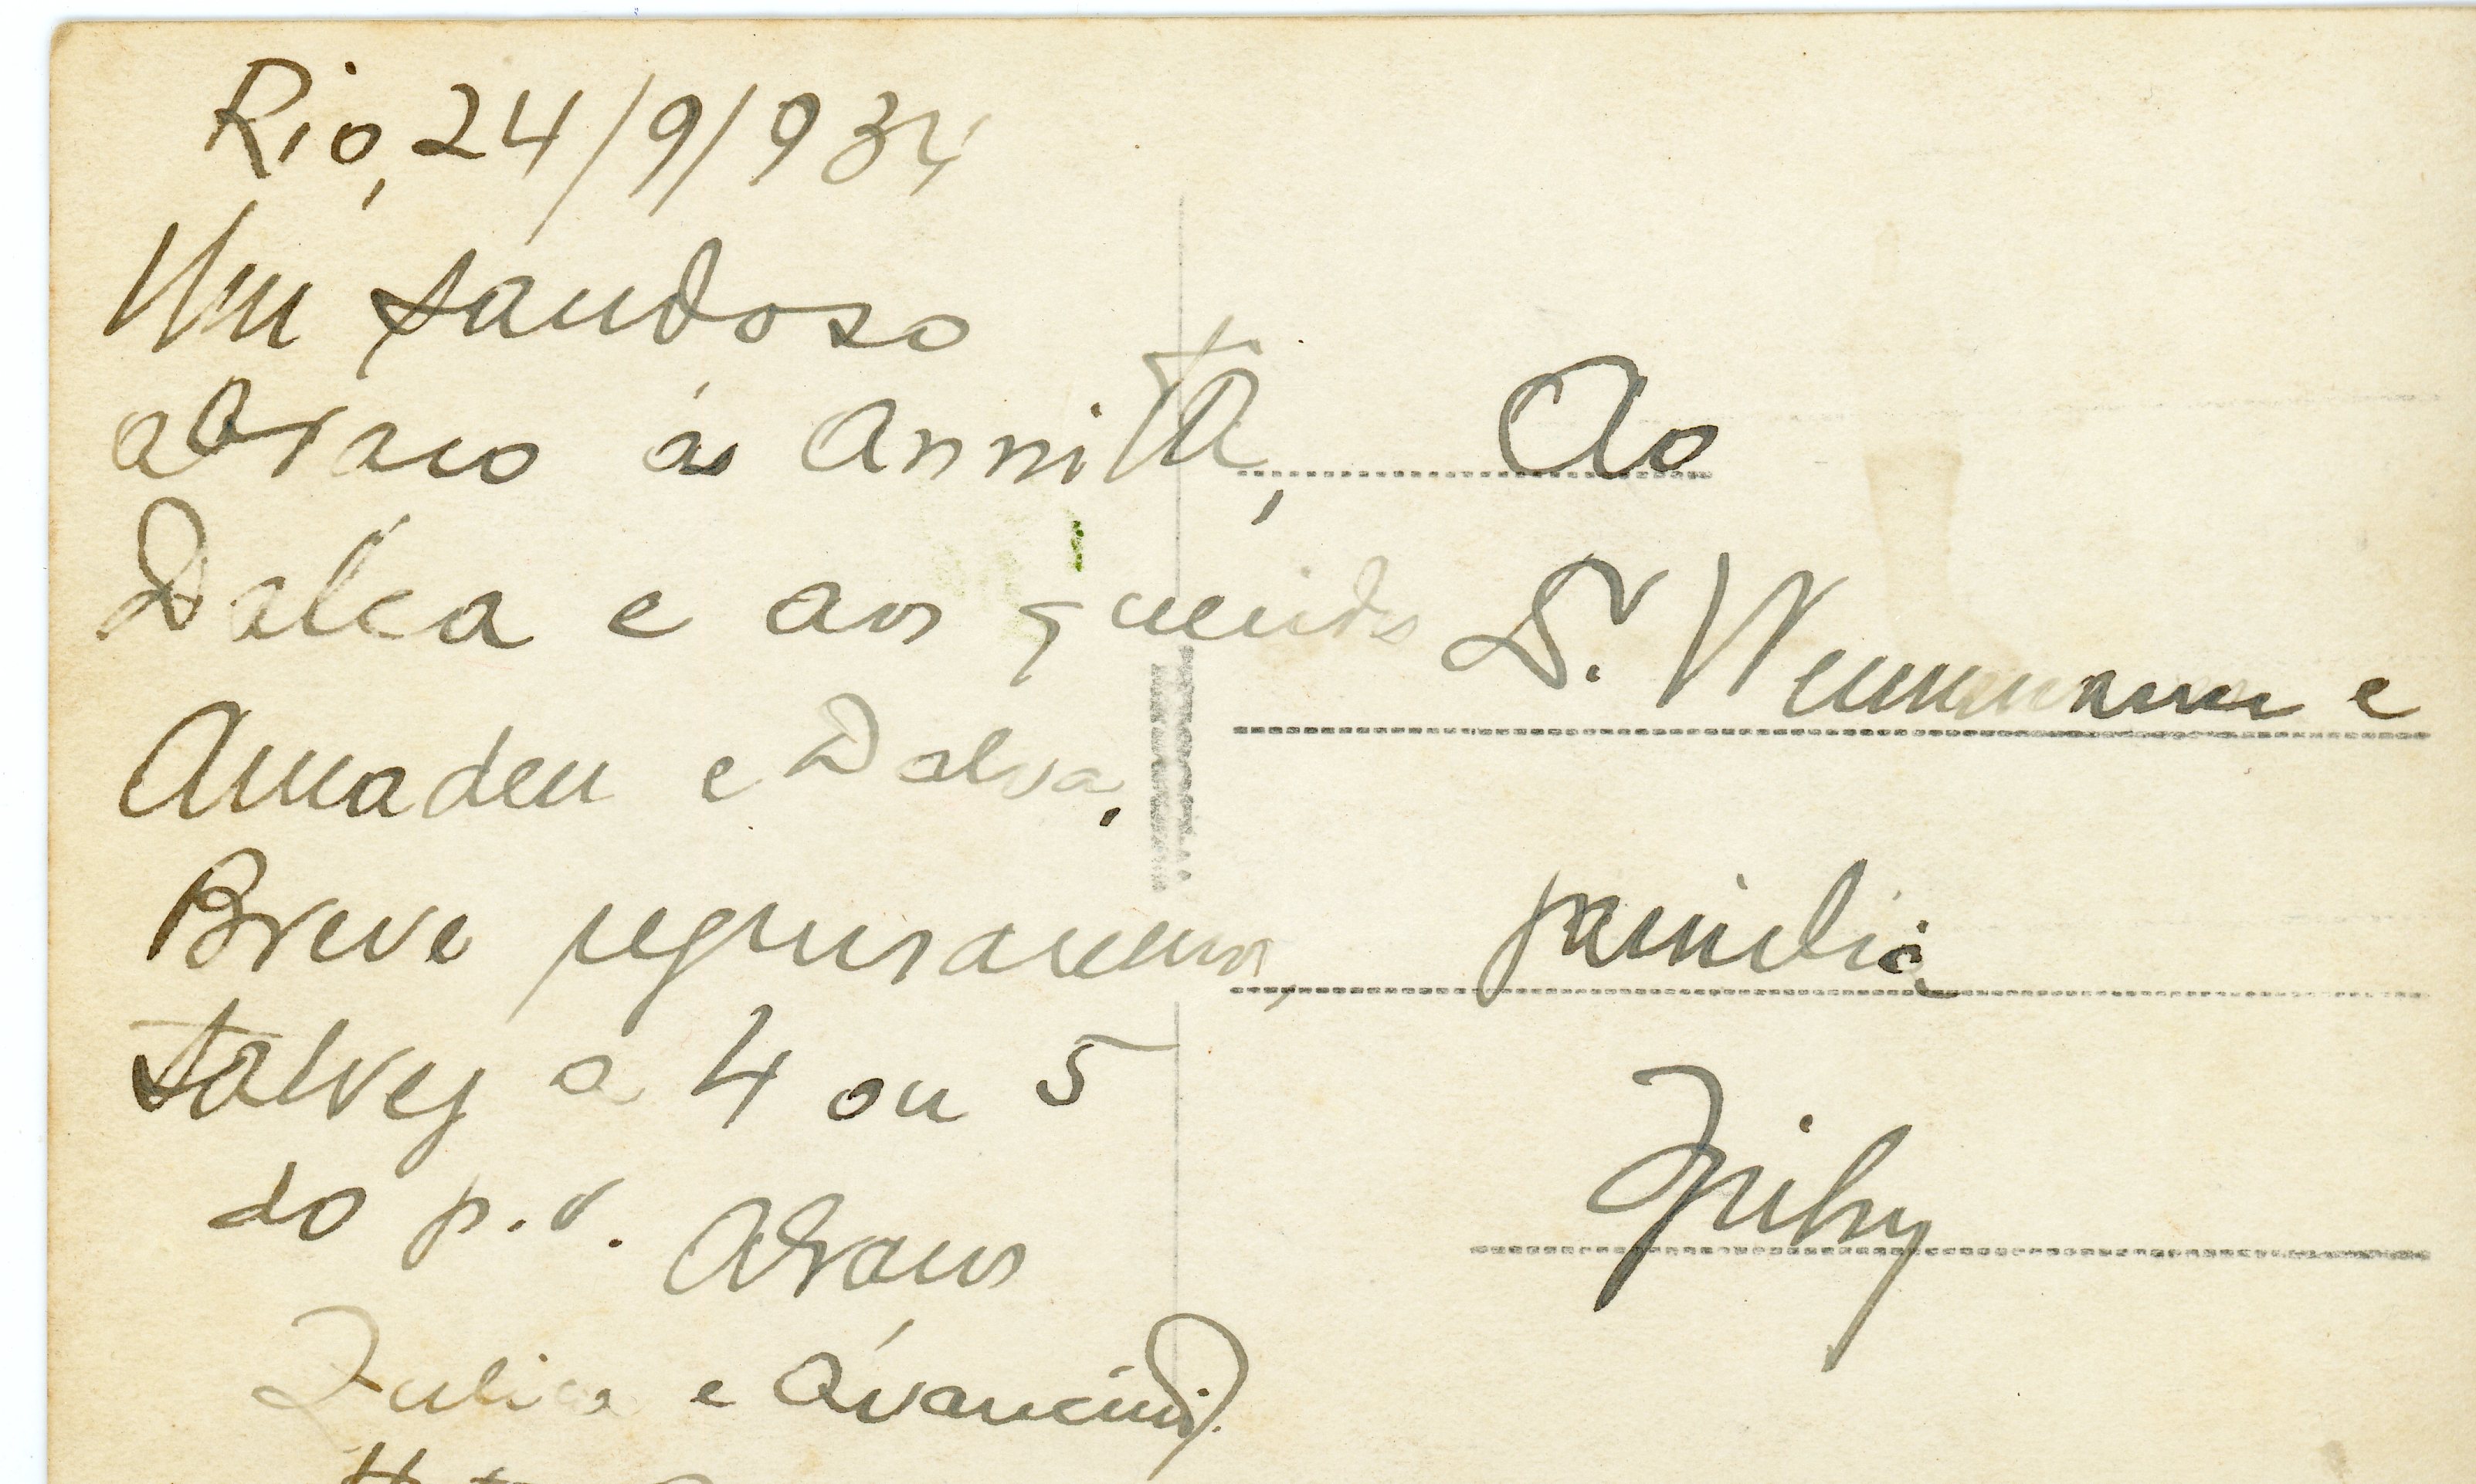 Rio, 24/9/934
Um saudoso
abraço ás Annitta,
Dalca e aos queridos
Amadeu e Dalva.
Breve regressaremos,
talvez a 4 ou 5
do p. v. Abraços
Julica e Avancini.
Ao
Dr. Neumann e
familia